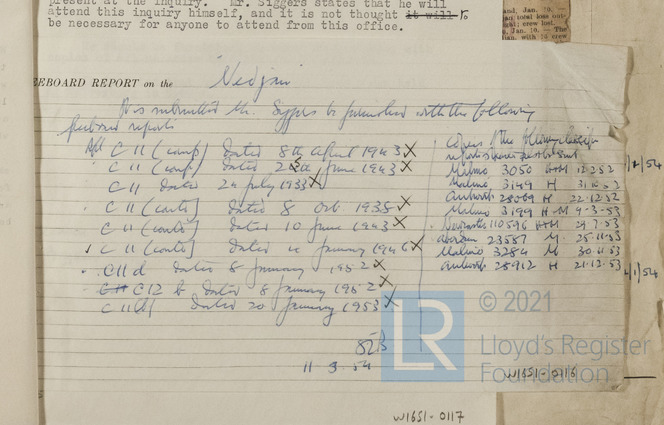 present at the inquiry. Mr. Siggers states that he will
attend this inquiry himself, and it is not thought it will to
be necessary for anyone to attend from this office.
and, Jan. 10.
an total loss
crew lost.
Jan. 10. — The
EEBOARD REPORT on the Nedjan
It is submitted Mr. Siggers be furnished with the following
freeboard reports
C 11 (comp) dated 8th April 1943 X
C 11 (comp) dated June 1943 X
C 11 dated 24 July 1933 X
C 11 (conts) dated 8 Oct 1938 X
C 11 (conts) dated 10 June 1943 X
✓ C 11 (conts) dated January 1946 X
C11 d dated 8 January 1952 X
C11 C12 b dated 8 January 1952 X
C 11 dated 20 January 1953 X
11 3.54
Copies of the following
reports
Malmo 3050 H+M 12.2.52
Malmo 3149 H
Antwerp 28069 H 22.12.52
Malmo 3199 H+M 9-3-53
Newcastle 110596 H+M 29.7.53
Aberdeen 23587 M 25.11.53
Malmo 3284 M 30.11.53
Antwerp 28912 H 21.12.53
/54
1/1/54
LR
© 2021
Lloyd's Register
Foundation
W1651-0116
W1651-0117